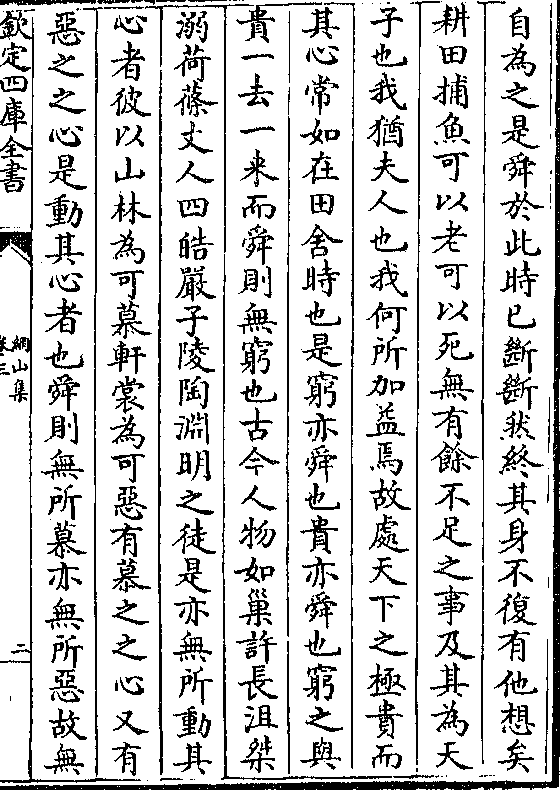 自為之是舜於此時已斷斷然終其身不復有他想矣
耕田捕魚可以老可以死無有餘不足之事及其為天
子也我猶夫人也我何所加益焉故處天下之極貴而
其心常如在田舍時也是窮亦舜也貴亦舜也窮之與
貴一去一来而舜則無窮也古今人物如巢許長沮桀
溺荷蓧丈人四皓嚴子陵陶淵明之徒是亦無所動其
心者彼以山林為可慕軒裳為可惡有慕之之心又有
惡之之心是動其心者也舜則無所慕亦無所惡故無
欽定四庫全書
網山集
卷三
二